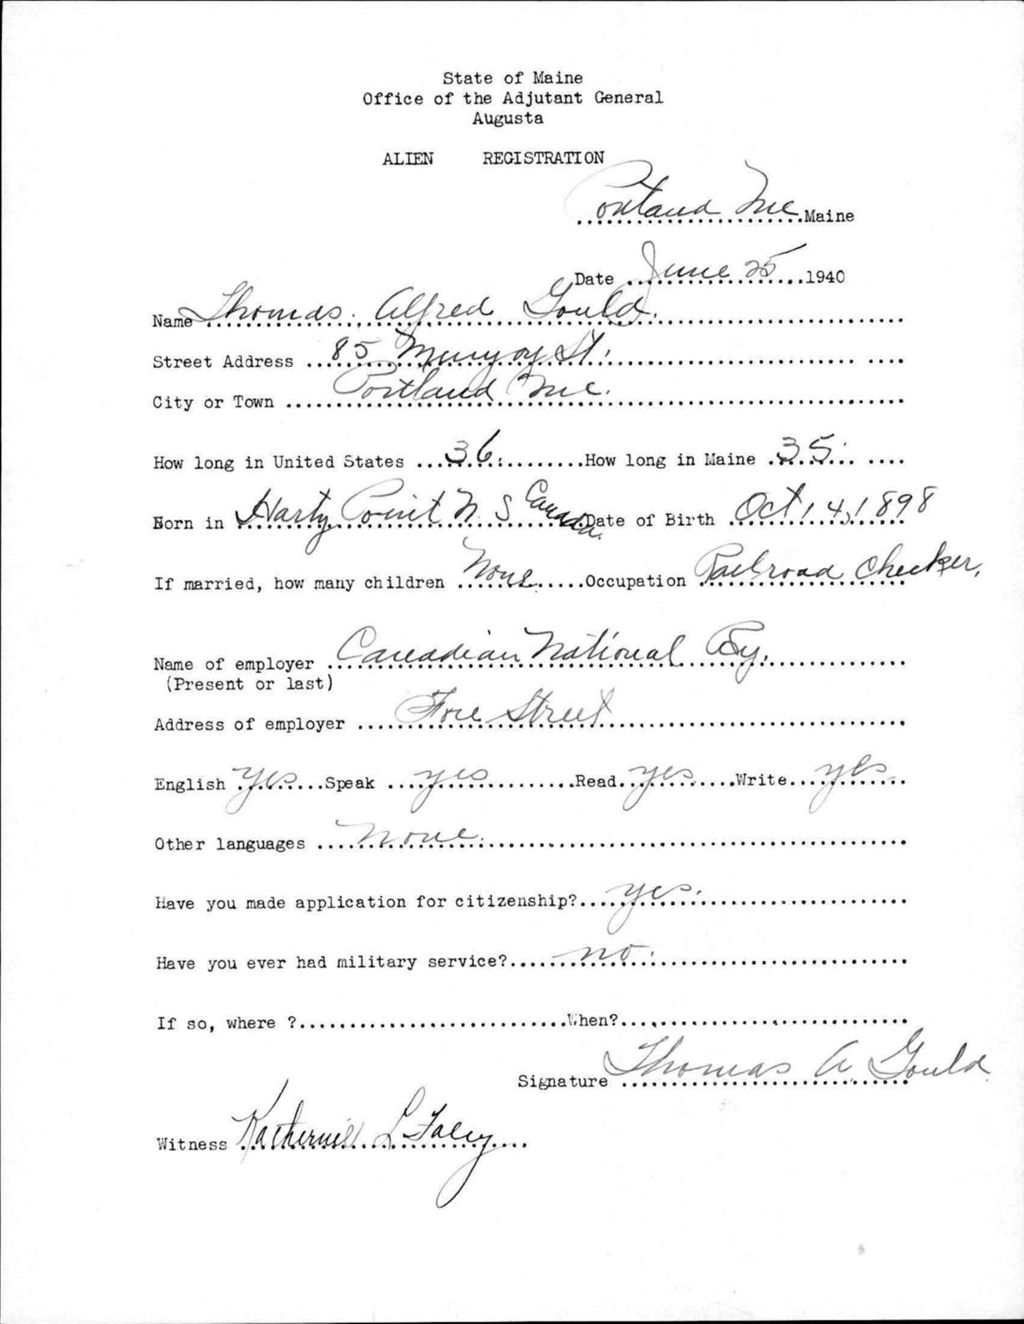 State of Maine
Office of the Adjutant General
Augusta
ALIEN REGISTRATION
Portland Me. Maine
Date June 25 1940
Name Thomas. Alfred Gould.
Street Address 85 St.
City or Town Portland Me.
How long in United States 36. How long in Maine 35.
Born in Point N. S Canada. Date of Birth Oct 14, 1898
If married, how many children None Occupation Railroad Checker.
Name of employer Canadian National Ry.
(Present or last)
Address of employer Fore Street
English yes Speak yes Read yes Write yes
Other languages none.
Have you made application for citizenship? yes.
Have you ever had military service? no.
If so, where ? When?
Signature Thomas A. Gould
Witness L Foley